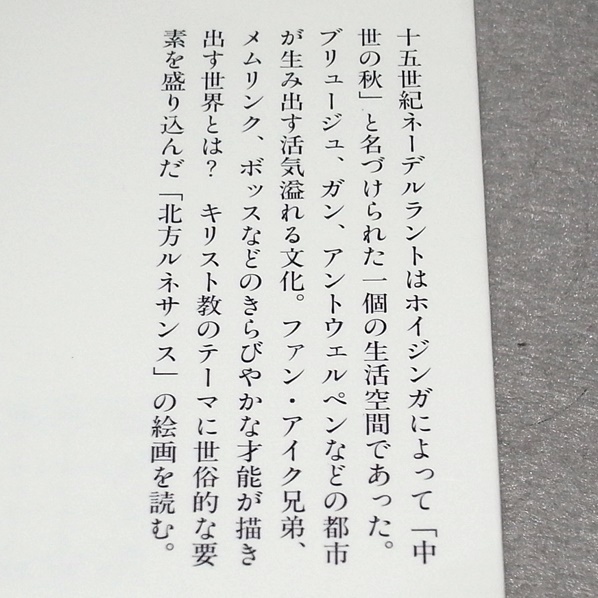 十五世紀ネーデルラントはホイジンガによって「中
世の秋」と名づけられた一個の生活空間であった。
ブリュージュ、ガン、アントウェルペンなどの都市
が生み出す活気溢れる文化。ファン・アイク兄弟、
メムリンク、ボッスなどのきらびやかな才能が描き
出す世界とは？　キリスト教のテーマに世俗的な要
素を盛り込んだ「北方ルネサンス」の絵画を読む。